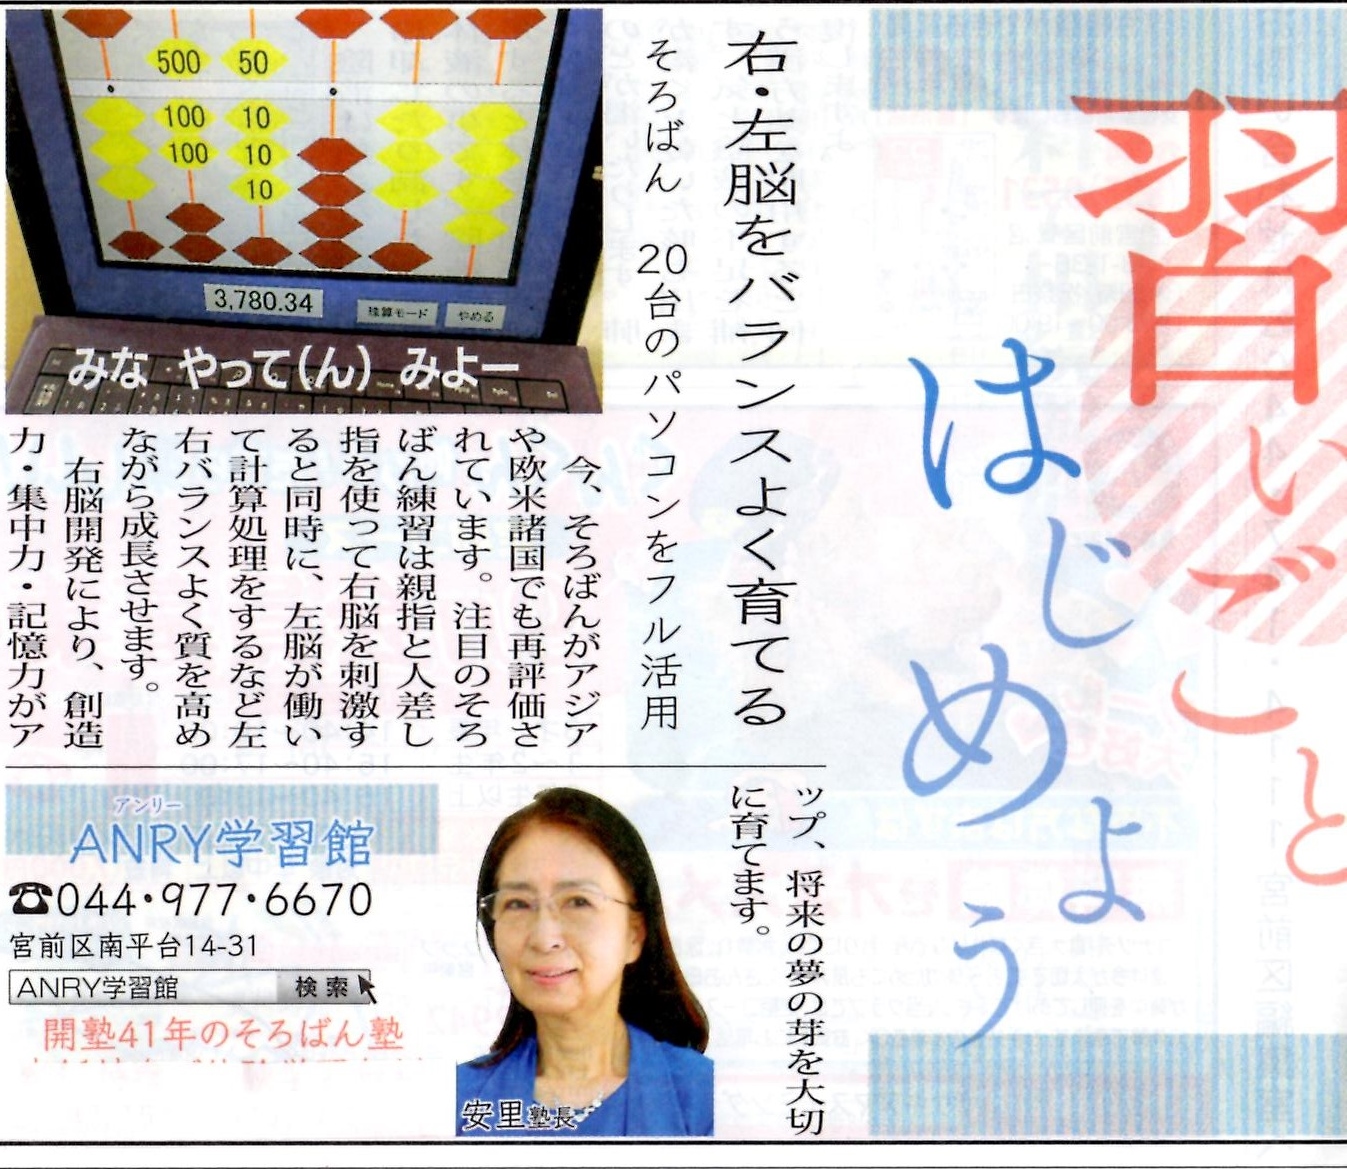 習いごと
はじめよう
右・左脳をバランスよく育てる
そろばん 20台のパソコンをフル活用
500 50
100 10
100 10
10
3,780.34
珠算モード
やめる
みな やって(ん) みよー
今、そろばんがアジア
や欧米諸国でも再評価さ
れています。注目のそろ
ばん練習は親指と人差し
指を使って右脳を刺激す
ると同時に、左脳が働い
て計算処理をするなど左
右バランスよく質を高め
ながら成長させます。
右脳開発により、創造
力・集中力・記憶力がア
ップ、将来の夢の芽を大切
に育てます。
アンリー
ANRY学習館
☎044・977・6670
宮前区南平台14-31
ANRY学習館 検索
開塾41年のそろばん塾
安里塾長